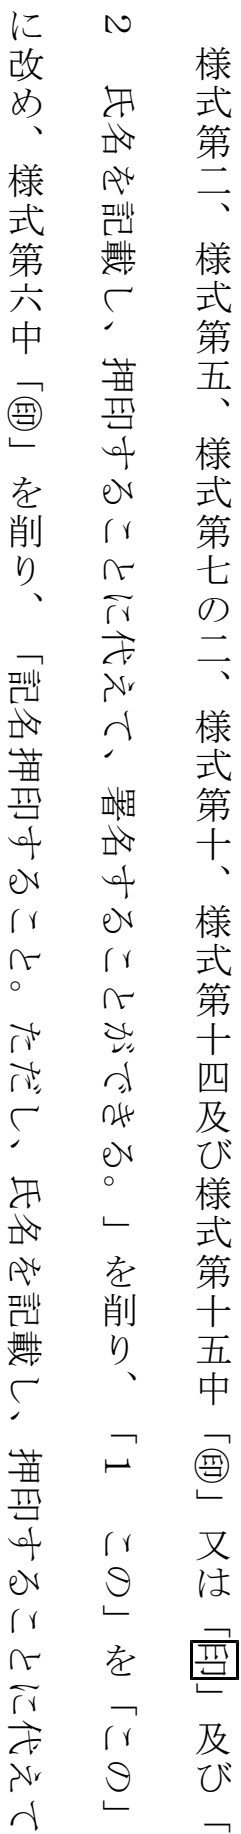 様式第二、様式第五、様式第七の二、様式第十、様式第十四及び様式第十五中「㊞」又は「印」及び「
２　氏名を記載し、押印することに代えて、署名することができる。」を削り、「１　この」を「この」
に改め、様式第六中「㊞」を削り、「記名押印すること。ただし、氏名を記載し、押印することに代えて